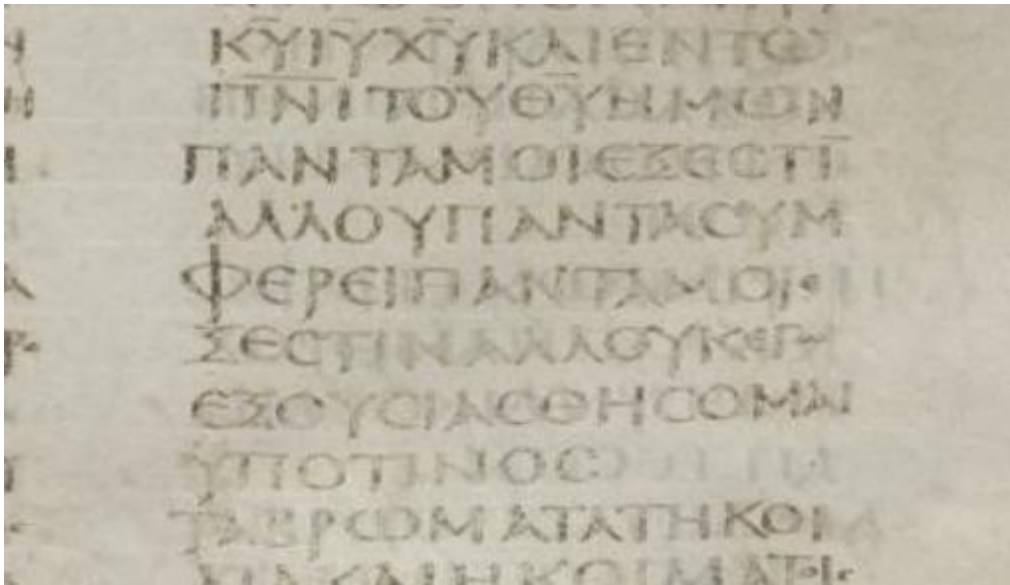 ΚΥ ΙΥ ΧΥ ΚΑΙ ΕΝ ΤΩ
ΠΝΙ ΤΟΥ ΘΥ ΗΜΩΝ
ΠΑΝΤΑ ΜΟΙ ΕΞΕΣΤΙ̅
ΑΛΛ ΟΥ ΠΑΝΤΑ ΣΥΜ
ΦΕΡΕΙ ΠΑΝΤΑ ΜΟΙ Ε
ΞΕΣΤΙΝ ΑΛΛ ΟΥΚ ΕΓΩ
ΕΞΟΥΣΙΑΣΘΗΣΟΜΑΙ
ΥΠΟ ΤΙΝΟΣ
ΤΑ ΒΡΩΜΑΤΑ ΤΗ ΚΟΙ